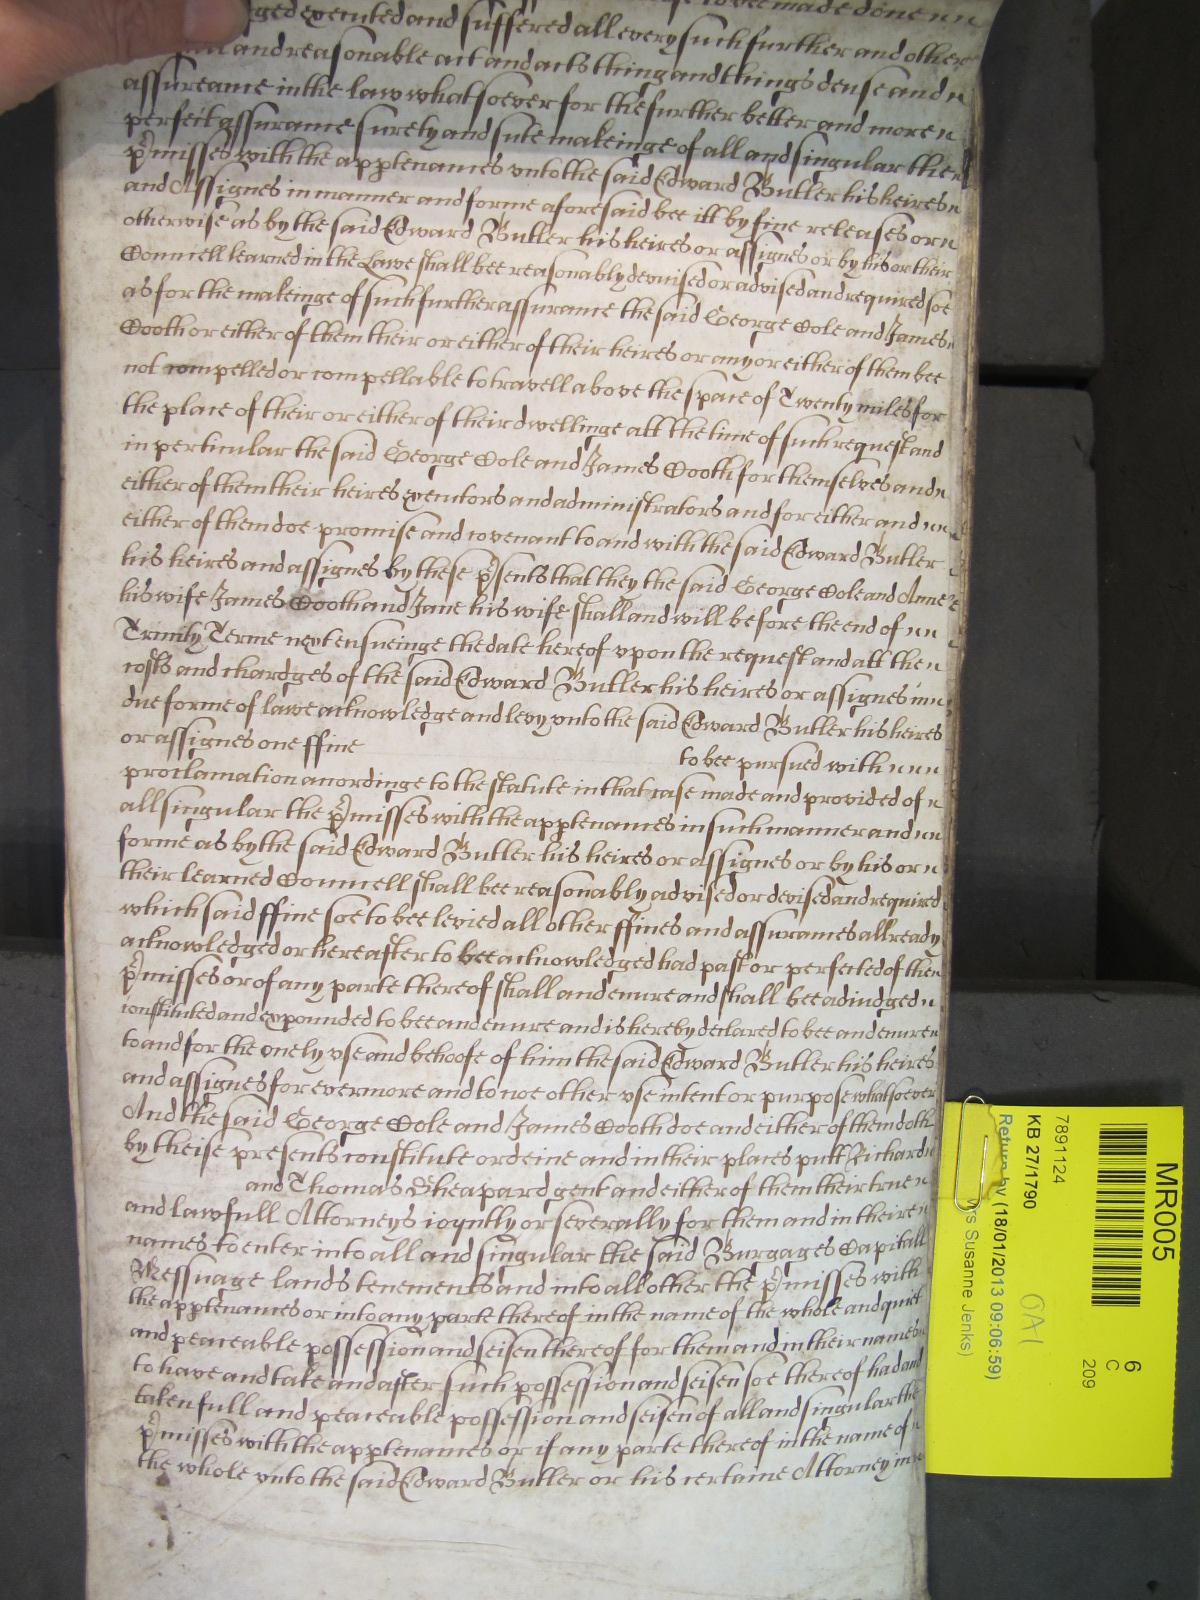 to bee made done
executed and suffered all every such further and other
and reasonable act and acts thing and things devise and
assurance in the law whatsoever for the further better and more
perfect assurance surety and sure makeinge of all and singular the
p̱misses with the apptenances unto the said Edward Butler his heires
and Assignes in manner and forme aforesaid bee itt by fine releases or
otherwise as by the said Edward Butler his heires or assignes or by his or their
Councell learned in the Lawe shall bee reasonably devised or advised and required soe
as for the makeinge of such further assurance the said George Cole and James
Cooth or either of them their or either of their heires or any or either of them bee
not compelled or compellable to travell above the space of Twenty miles for
the place of their or either of their dwellinge att the time of such request and
in perticular the said George Cole and James Cooth for themselves and
either of them their heires executors and administrators and for either and
either of them doe promise and covenant to and with the said Edward Butler
his heires and assignes by these p̱sents that they the said George Cole and Anne
his wife James Cooth and Jane his wife shall and will before the end of
Trinity Terme next ensueinge the date hereof upon the request and att the
costs and chardges of the said Edward Butler his heires or assignes in
due forme of lawe acknowledge and levy unto the said Edward Butler his heires
or assignes one ffine to bee pursued with
proclamation accordinge to the statute in that case made and provided of
all singular the p̱misses with the apptenances in such manner and
forme as by the said Edward Butler his heires or assignes or by his or
their learned Councell shall bee reasonably advised or devised and required
which said ffine soe to bee levied all other ffines and assurances allready
acknowledged or hereafter to bee acknowledged had past or perfected of the
p̱misses or of any parte thereof shall and enure and shall bee adiudged
constituted and expounded to bee and enure and is hereby declared to bee and enure
to and for the onely use and behoofe of him the said Edward Butler his heires
and assignes for evermore and to noe other use intent or purpose whatsoever
And the said George Cole and James Cooth doe and either of them doth
by theise presents constitute ordeine and in their places putt Richard
and Thomas Sheapard gent and either of them their true
and lawfull Attorneys ioyntly or severally for them and in their
names to enter into all and singular the said Burgages Capitall
Messuage lands tenements and into all other the p̱misses with
the apptenances or into any parte thereof in the name of the whole and quiet
and peaceable possession and seisen thereof for them and in their names
to have and take and after such possession and seisen soe thereof had and
taken full and peaceable possession and seisen of all and singular the
p̱misses with the apptenances or if any parte thereof in the name of
the whole unto the said Edward Butler or his certaine Attorney in
MR005
6
C
209
7891124
KB 27/1790
Return by (18/01/2013 09:06:59)
OA1
Mrs Susanne Jenks)